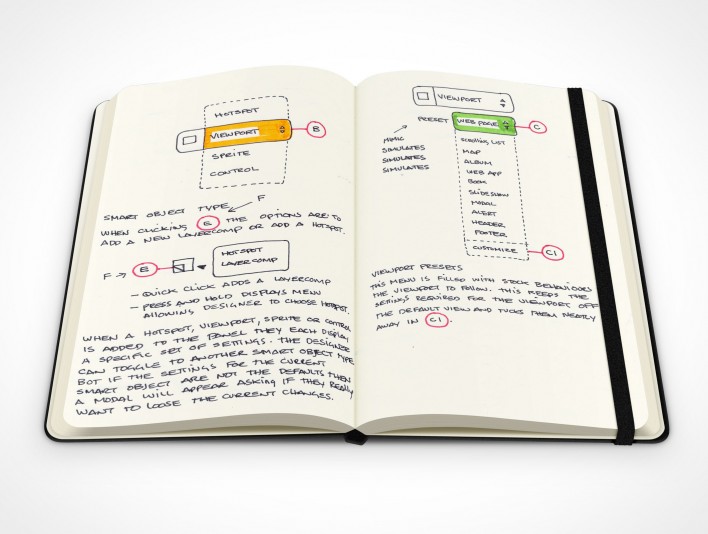 HOTSPOT
VIEWPORT
B
SPRITE
CONTROL
SMART OBJECT TYPE F
WHEN CLICKING E THE OPTIONS ARE TO
ADD A NEW LAYERCOMP OR ADD A HOTSPOT.
F → E
HOTSPOT
LAYERCOMP
- QUICK CLICK ADDS A LAYERCOMP
- PRESS AND HOLD DISPLAYS MENU
ALLOWING DESIGNER TO CHOOSE HOTSPOT.
WHEN A HOTSPOT, VIEWPORT, SPRITE OR CONTROL
IS ADDED TO THE PANEL THEY EACH DISPLAY
A SPECIFIC SET OF SETTINGS. THE DESIGNER
CAN TOGGLE TO ANOTHER SMART OBJECT TYPE
BUT IF THE SETTINGS FOR THE CURRENT
SMART OBJECT ARE NOT THE DEFAULTS THEN
A MODAL WILL APPEAR ASKING IF THEY REALLY
WANT TO LOOSE THE CURRENT CHANGES.
VIEWPORT
PRESET WEB PAGE C
MIMIC
SIMULATES
SIMULATES
SIMULATES
SCROLLING LIST
MAP
ALBUM
WEB APP
BOOK
SLIDESHOW
MODAL
ALERT
HEADER
FOOTER
CUSTOMIZE C1
VIEWPORT PRESETS
THIS MENU IS FILLED WITH STOCK BEHAVIOURS
THE VIEWPORT TO FOLLOW. THIS KEEPS THE
SETTINGS REQUIRED FOR THE VIEWPORT OFF
THE DEFAULT VIEW AND TUCKS THEM NEATLY
AWAY IN C1.